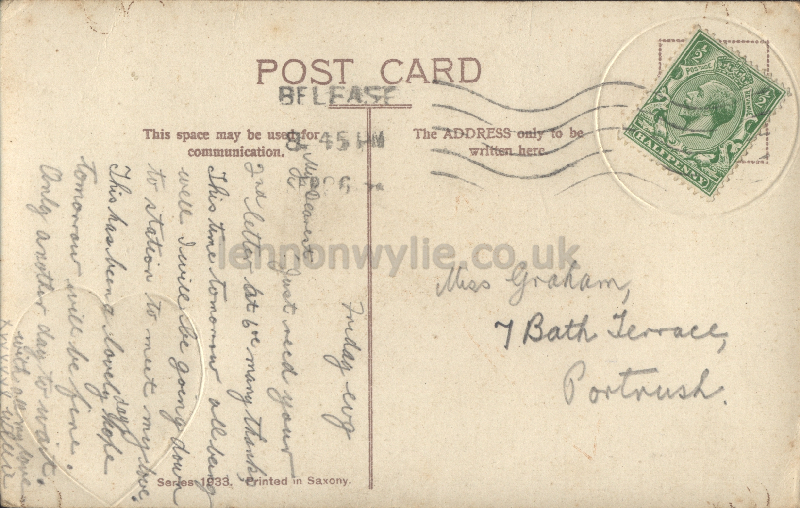 POST CARD
BELFAST
8 45 PM
This space may be used for
communication.
The ADDRESS only to be
written here.
½ ½
POSTAGE
HALFPENNY
Friday evg
My Dearest Just recd your
2nd letter at 6oc many thanks
This time tomorrow all being
well I will be going down
to station to meet my love.
This has being a lovely day hope
tomorrow will be fine.
Only another day to wait.
with all my love
xxxxxx Willie
Miss Graham,
7 Bath Terrace,
Portrush.
lennonwylie.co.uk
Series 1933. Printed in Saxony.